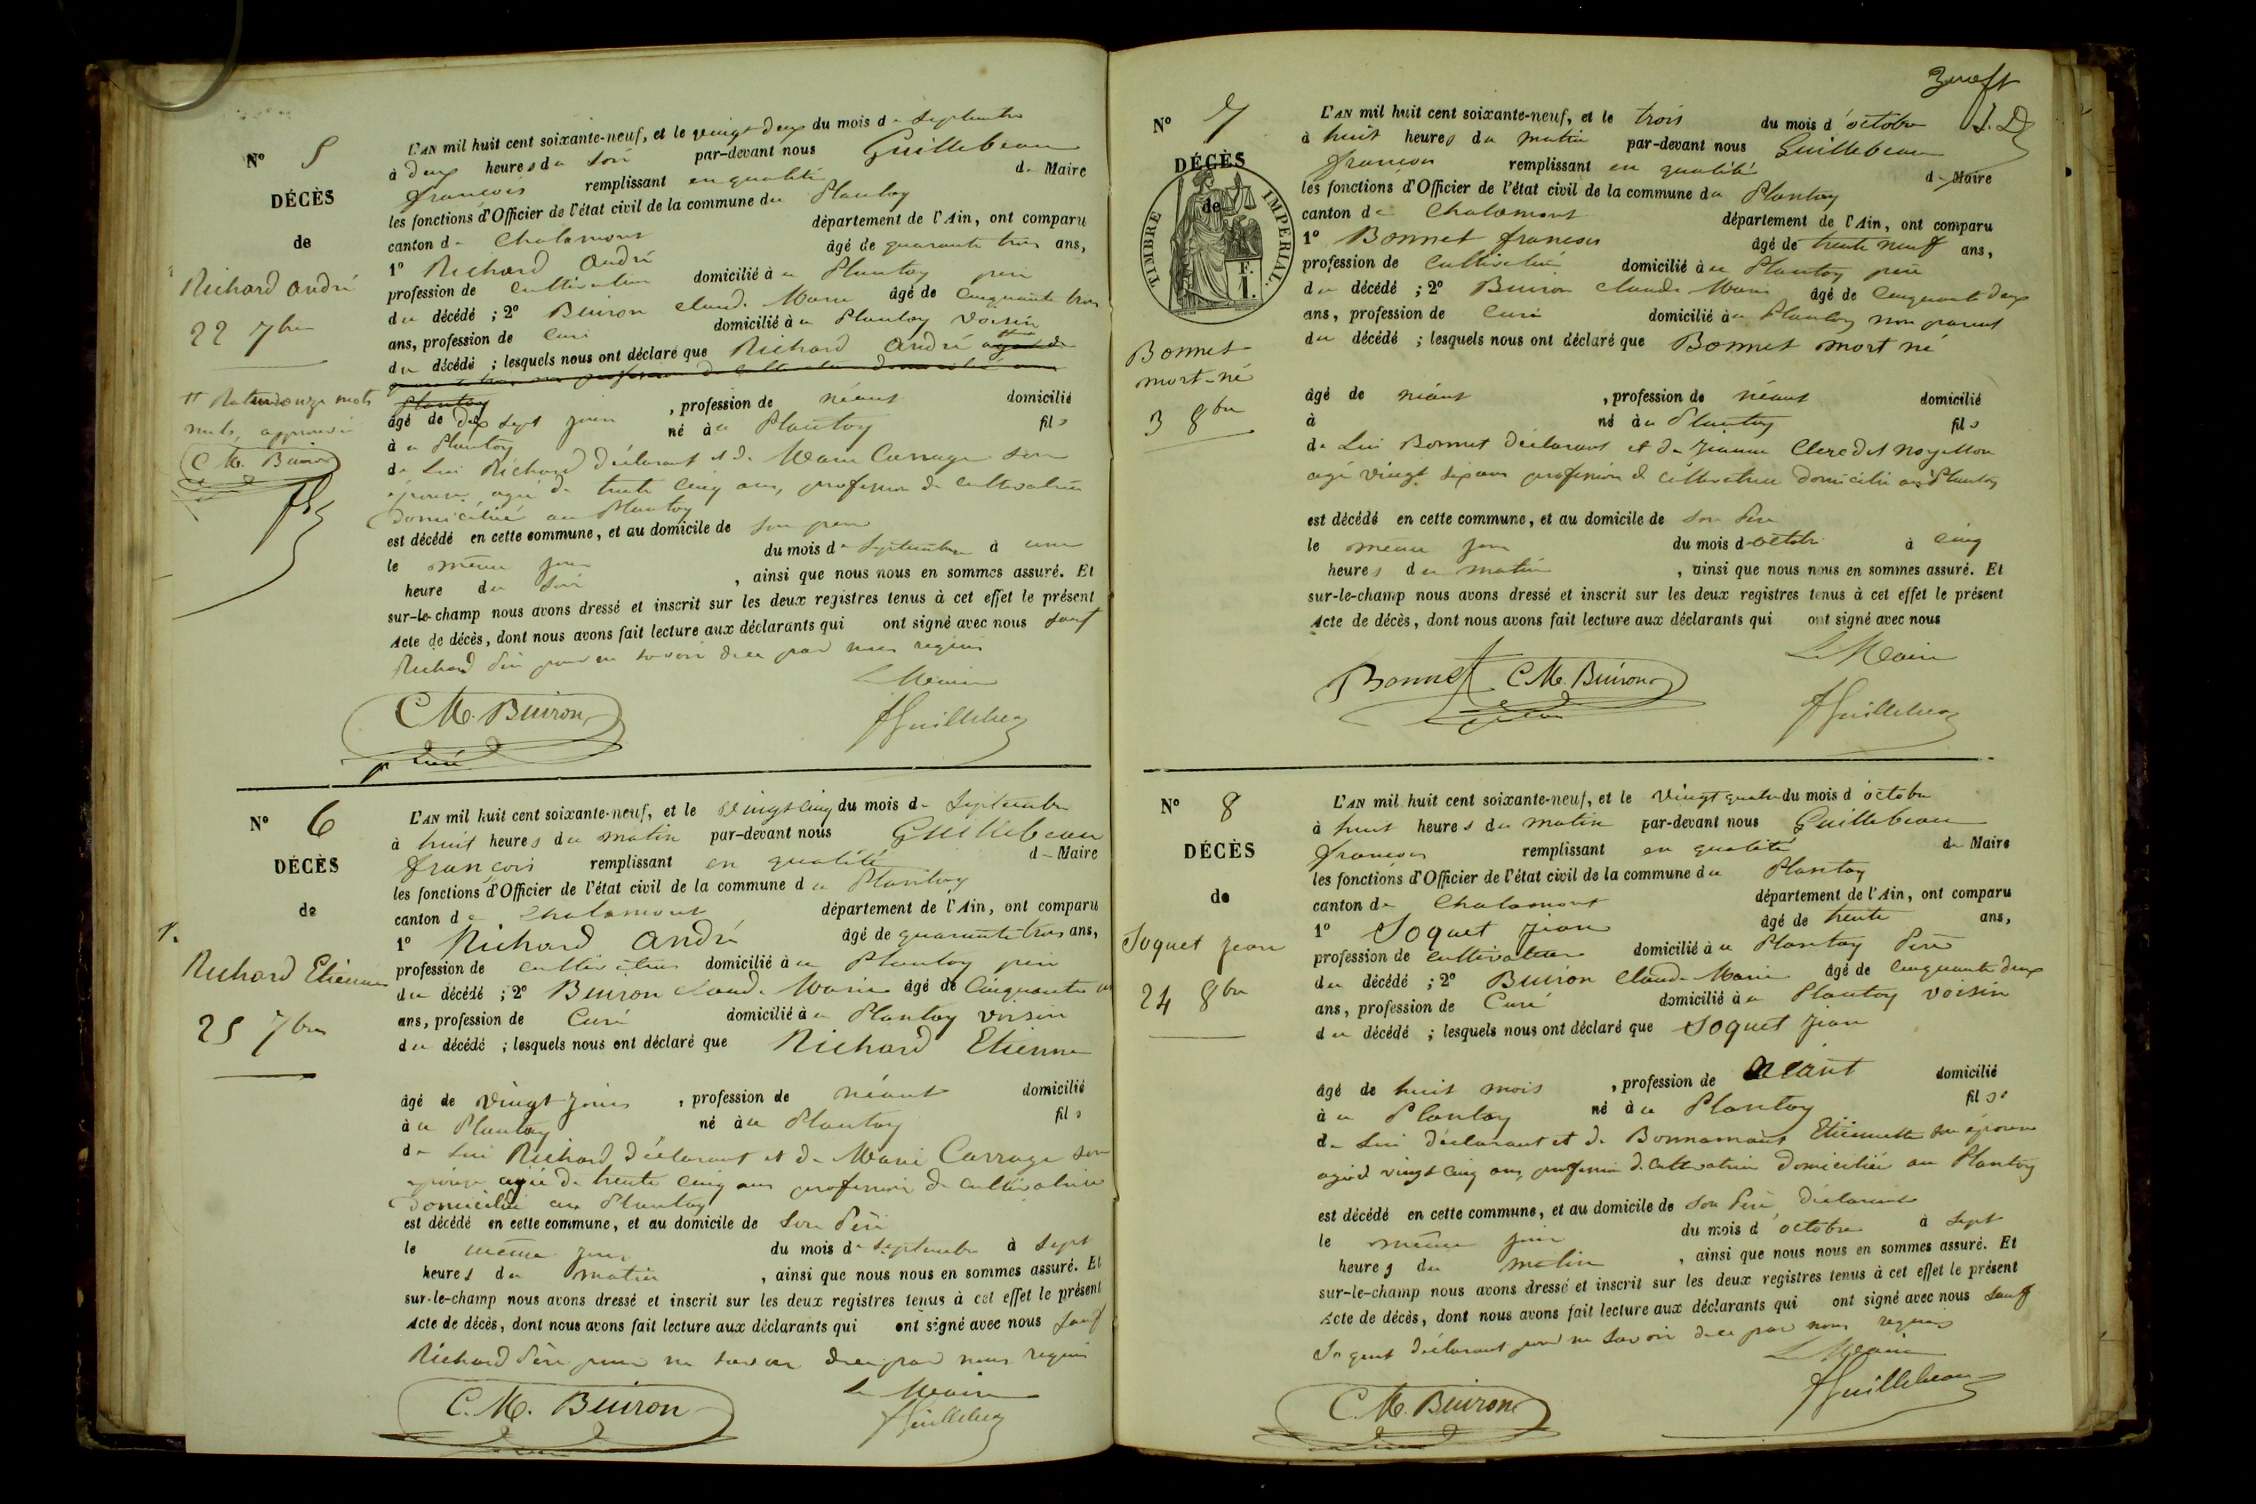 N° 5
DÉCÈS
de
Richard andré
22 7bre
mots
nuls, approuvés
C. M. Buiron
L'AN mil huit cent soixante-neuf, et le vingt deux du mois de Septembre
à deux heures du soir par-devant nous Guillebeau
françois remplissant en qualité de Maire
les fonctions d'Officier de l'état civil de la commune du Plantay
canton de Chalamont département de l'Ain, ont comparu
1° Richard André âgé de quarante trois ans,
profession de cultivateur domicilié à u Plantay père
du décédé ; 2° Buiron Claude Marie âgé de Cinquante trois
ans, profession de Curé domicilié à u Plantay voisin
du décédé ; lesquels nous ont déclaré que Richard André
Plantay
âgé de dix sept jours , profession de néant domicilié
à u Plantay né à u Plantay fils
de lui Richard déclarant et de Marie Carrage son
épouse, agée de trente cinq ans, profession de cultivatrice
domiciliée au Plantay
est décédé en cette commune, et au domicile de son père
le même jour du mois de Septembre à une
heure du soir , ainsi que nous nous en sommes assuré. Et
sur-le-champ nous avons dressé et inscrit sur les deux registres tenus à cet effet le présent
Acte de décès, dont nous avons fait lecture aux déclarants qui ont signé avec nous sauf
Richard père pour ne savoir de ce par nous requis
Le Maire
C. M. Buiron
curé
N° 6
DÉCÈS
de
Richard Etienne
25 7bre
L'AN mil huit cent soixante-neuf, et le vingt cinq du mois de Septembre
à huit heures du matin par-devant nous Guillebeau
françois remplissant en qualité de Maire
les fonctions d'Officier de l'état civil de la commune du Plantay
canton de Chalamont département de l'Ain, ont comparu
1° Richard André âgé de quarante trois ans,
profession de cultivateur domicilié à u Plantay père
du décédé ; 2° Buiron Claude Marie âgé de Cinquante
ans, profession de Curé domicilié à u Plantay voisin
du décédé ; lesquels nous ont déclaré que Richard Etienne
âgé de vingt jours , profession de néant domicilié
à u Plantay né à u Plantay fils
de lui Richard déclarant et de Marie Carrage son
épouse agée de trente cinq ans profession de cultivatrice
domiciliée au Plantay
est décédé en cette commune, et au domicile de son Père
le même jour du mois de Septembre à sept
heures du matin , ainsi que nous nous en sommes assuré. Et
sur-le-champ nous avons dressé et inscrit sur les deux registres tenus à cet effet le présent
Acte de décès, dont nous avons fait lecture aux déclarants qui ont signé avec nous sauf
Richard Père pour ne savoir de ce par nous requis
Le Maire
C. M. Buiron
N° 7
DÉCÈS
de
TIMBRE IMPERIAL.
F.
1.
Bonnet
mort-né
3 8bre
L'AN mil huit cent soixante-neuf, et le trois du mois d'octobre
à huit heures du matin par-devant nous Guillebeau
françois remplissant en qualité de Maire
les fonctions d'Officier de l'état civil de la commune du Plantay
canton de Chalamont département de l'Ain, ont comparu
1° Bonnet françois âgé de trente neuf ans,
profession de Cultivateur domicilié à u Plantay père
du décédé ; 2° Buiron Claude Marie âgé de Cinquante deux
ans, profession de Curé domicilié à u Plantay non parent
du décédé ; lesquels nous ont déclaré que Bonnet mort né
âgé de néant , profession de néant domicilié
à né à u Plantay fils
de lui Bonnet déclarant et de Jeanne Clerc
agée vingt six ans profession de cultivatrice domicilié au Plantay
est décédé en cette commune, et au domicile de son Père
le même jour du mois d'octobre à cinq
heures du matin , ainsi que nous nous en sommes assuré. Et
sur-le-champ nous avons dressé et inscrit sur les deux registres tenus à cet effet le présent
Acte de décès, dont nous avons fait lecture aux déclarants qui ont signé avec nous
Le Maire
Bonnet C. M. Buiron
N° 8
DÉCÈS
de
Soquet Jean
24 8bre
L'AN mil huit cent soixante-neuf, et le vingt quatre du mois d'octobre
à huit heures du matin par-devant nous Guillebeau
françois remplissant en qualité de Maire
les fonctions d'Officier de l'état civil de la commune du Plantay
canton de Chalamont département de l'Ain, ont comparu
1° Soquet Jean âgé de trente ans,
profession de cultivateur domicilié à u Plantay Père
du décédé ; 2° Buiron Claude Marie âgé de Cinquante deux
ans, profession de Curé domicilié à u Plantay voisin
du décédé ; lesquels nous ont déclaré que Soquet Jean
âgé de huit mois , profession de Néant domicilié
à u Plantay né à u Plantay fils
de lui déclarant et de Bonnamour Etiennette son épouse
agée de vingt cinq ans, profession de cultivatrice domiciliée au Plantay
est décédé en cette commune, et au domicile de son Père déclarant
le même jour du mois d'octobre à sept
heures du matin , ainsi que nous nous en sommes assuré. Et
sur-le-champ nous avons dressé et inscrit sur les deux registres tenus à cet effet le présent
Acte de décès, dont nous avons fait lecture aux déclarants qui ont signé avec nous sauf
Soquet déclarant pour ne savoir de ce par nous requis
Le Maire
C. M. Buiron